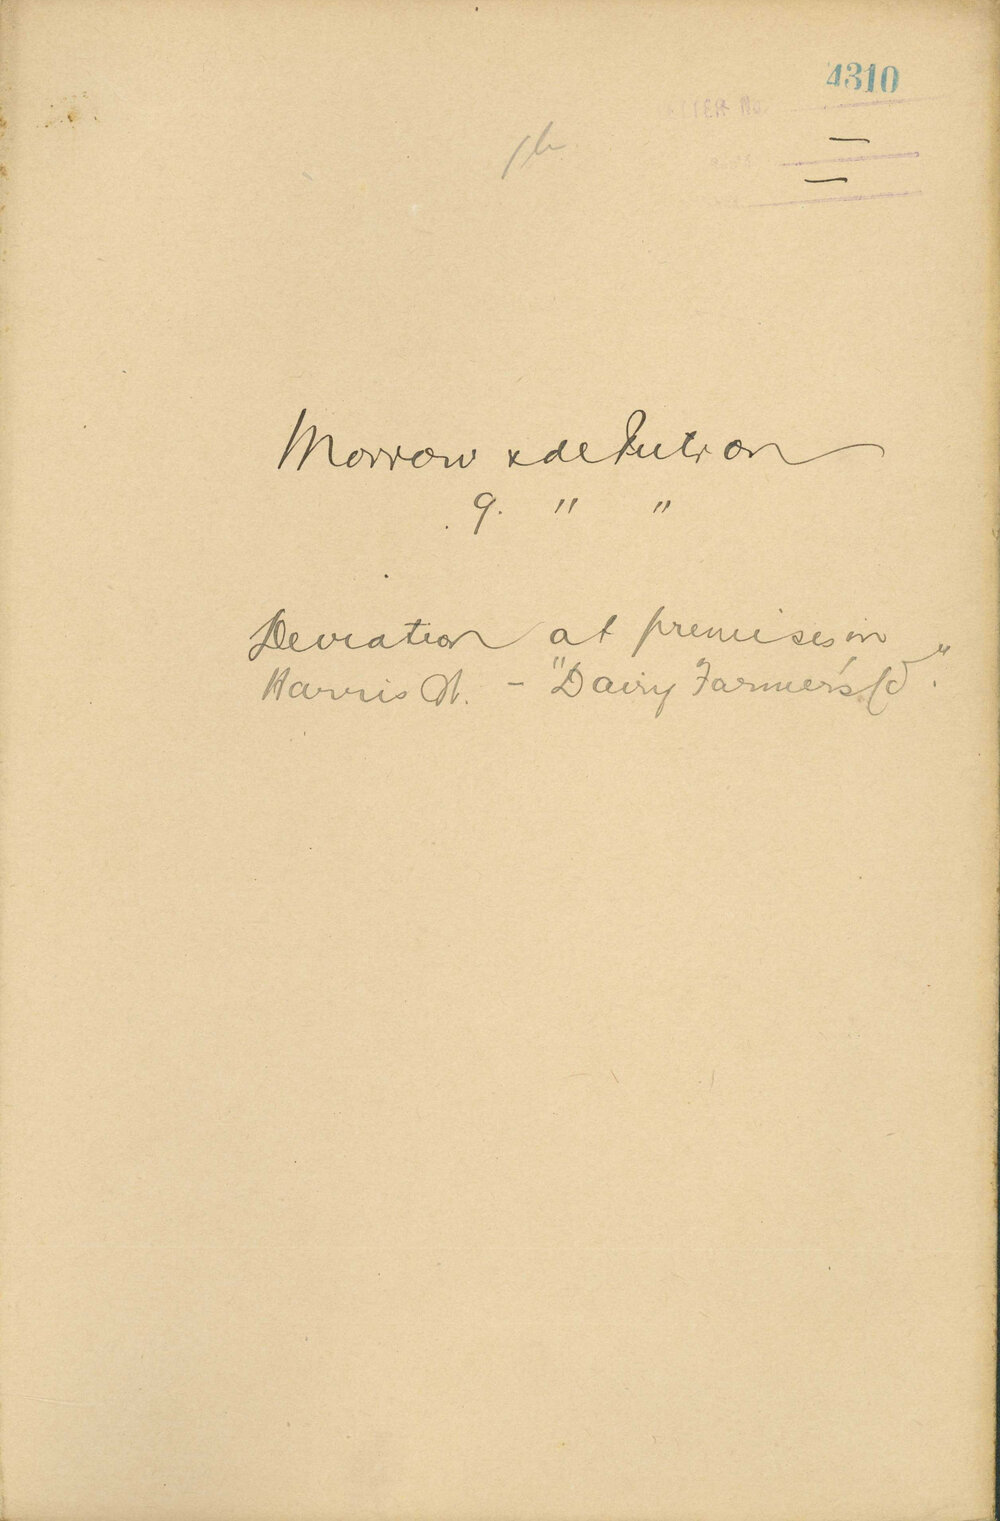 4310
Morrow & de Putron
9. " "
Deviation at premises in
Harris St. – "Dairy Farmer's Co."